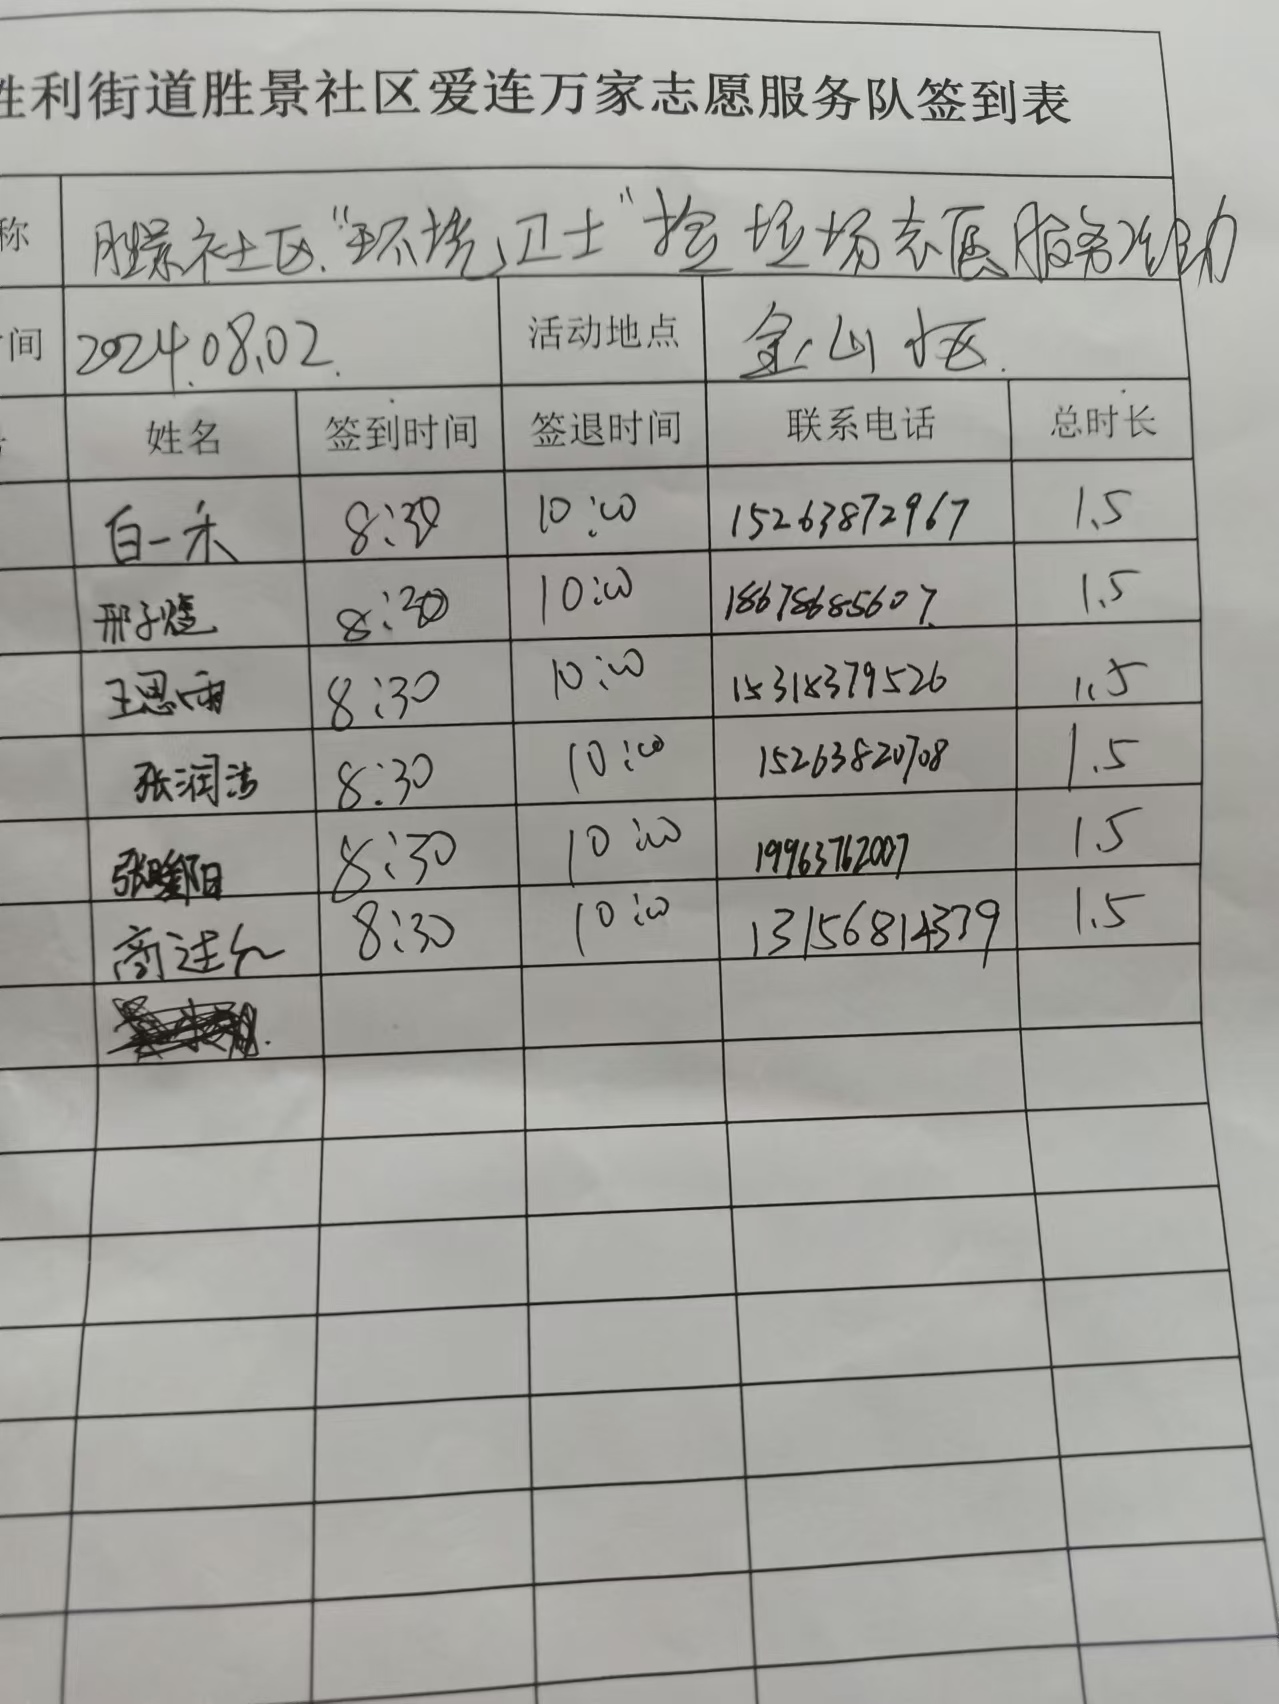 胜利街道胜景社区爱连万家志愿服务队签到表
称 胜景社区“环境卫士”捡垃圾志愿服务活动
时间 2024.08.02. 活动地点 金山
姓名 签到时间 签退时间 联系电话 总时长
白一禾 8:30 10:00 15263872967 1.5
邢子 8:30 10:00 18678685607 1.5
王思雨 8:30 10:00 15318379526 1.5
张润洁 8:30 10:00 15263820708 1.5
张 阳 8:30 10:00 19963762007 1.5
商 8:30 10:00 13156814379 1.5